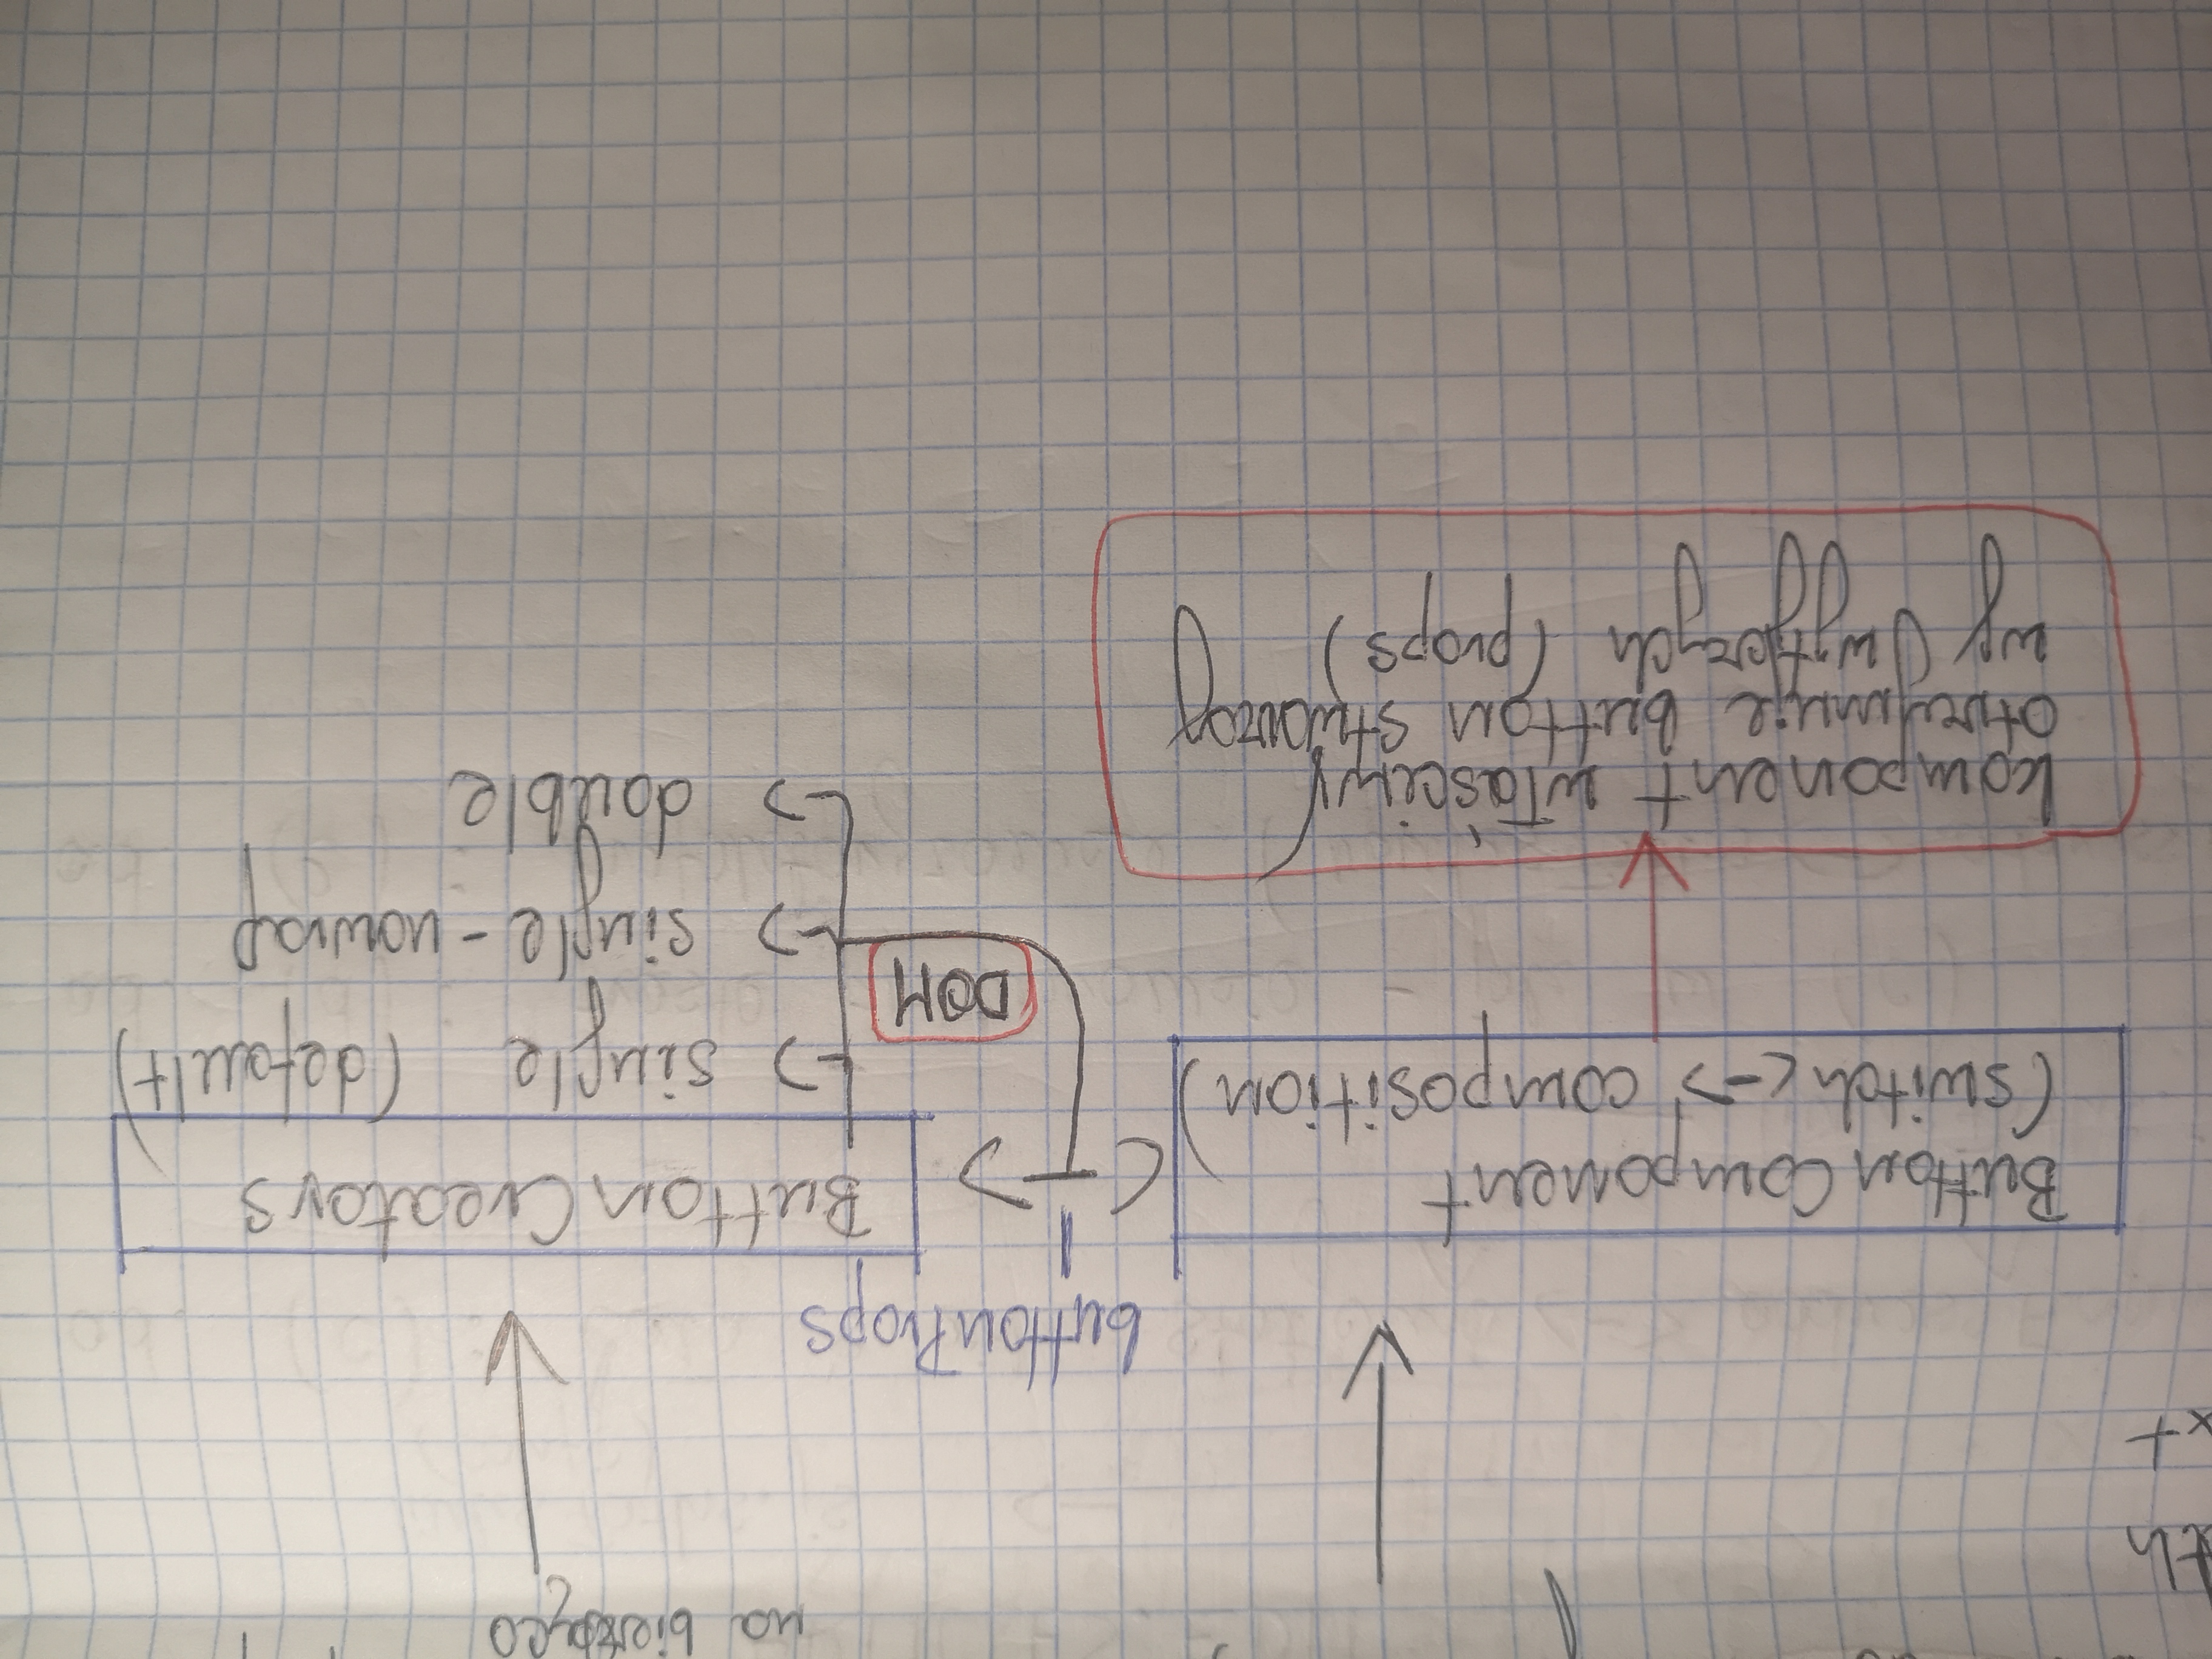 na bieżąco
th
xt
buttonProps
ButtonComponent
(switch <-> composition)
<-->
ButtonCreators
-> single (default)
DOM
-> single-nowrap
-> double
komponent właściwy
otrzymuje button stworzony
wg wytycznych (props)